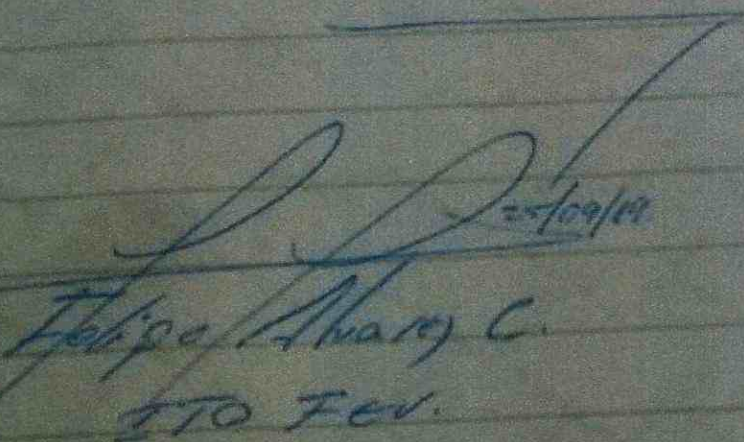 25/09/19
Felipe Alvarez C.
ITO FEV.